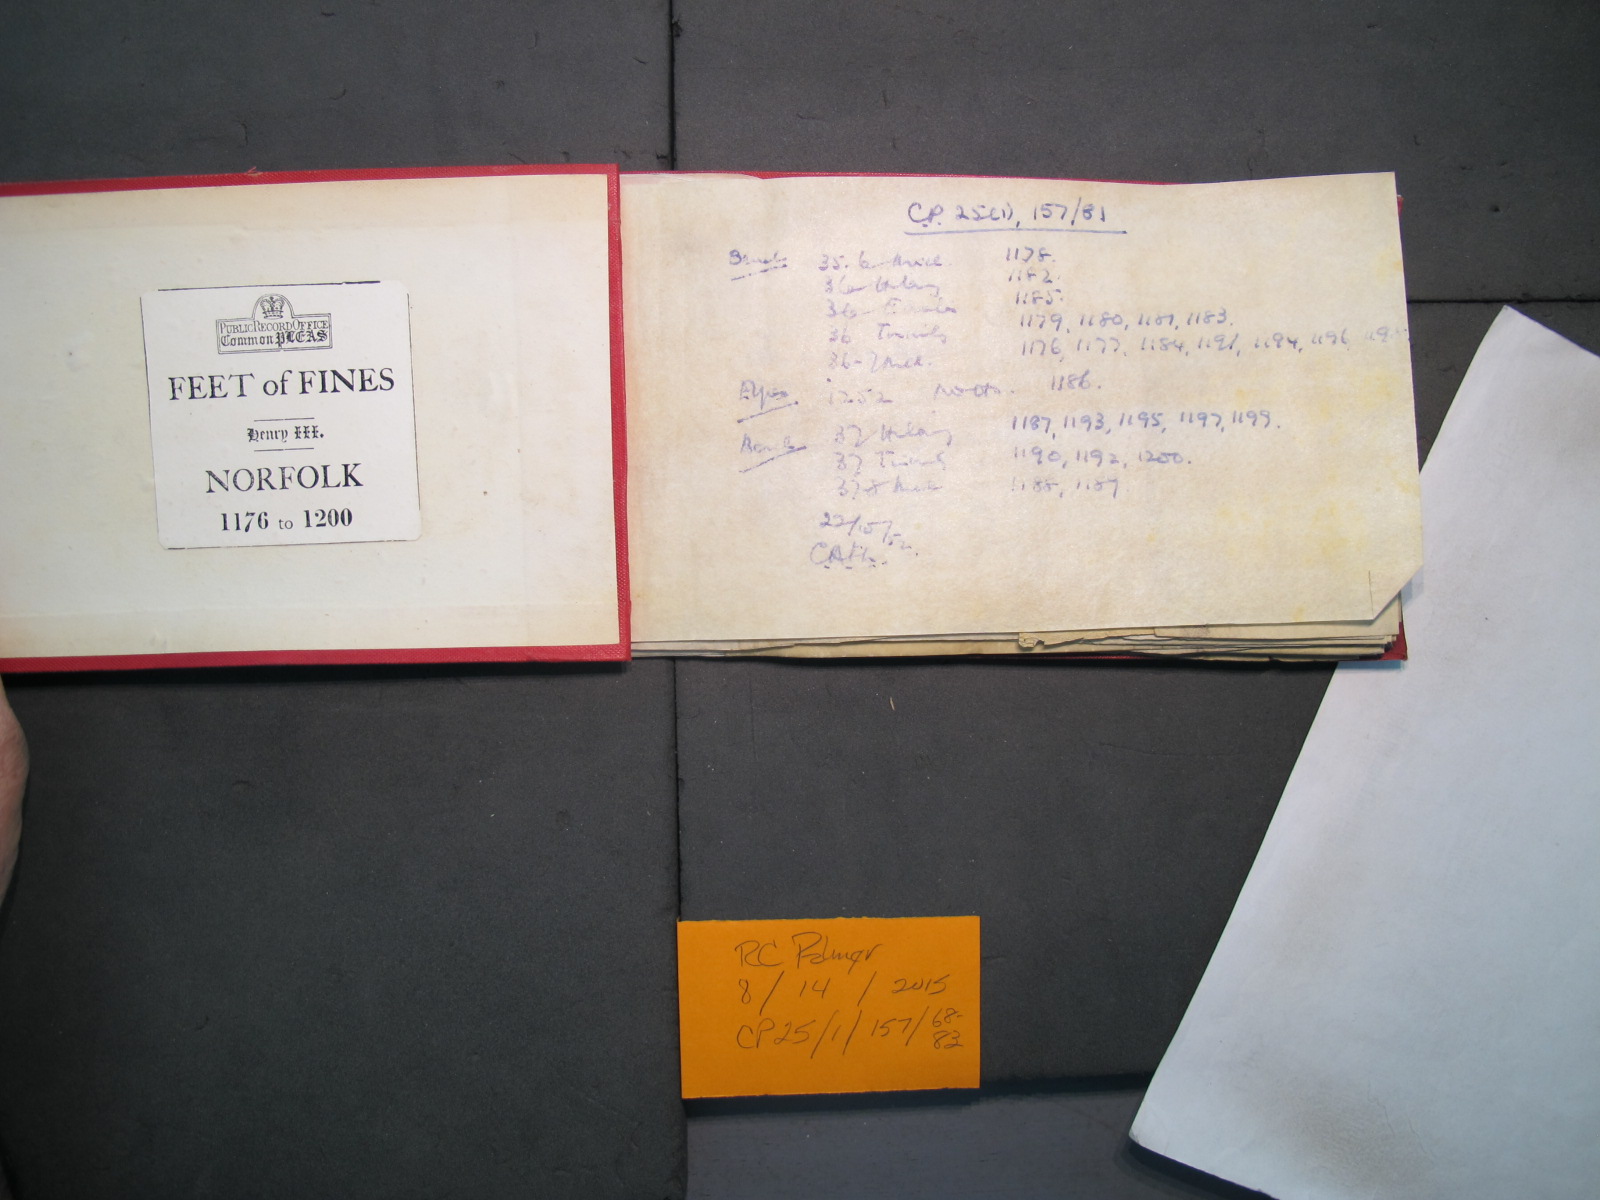 PUBLIC RECORD OFFICE
Common PLEAS
FEET of FINES
Henry III.
NORFOLK
1176 to 1200
C.P. 25(1), 157/81
35-6 Mich. 1178.
36 Hilary 1182.
36 Easter 1185.
36 Trinity 1179, 1180, 1181, 1183.
36-7 Mich. 1176, 1177, 1184, 1191, 1194, 1196,
1252 1186.
37 Hilary 1187, 1193, 1195, 1197, 1199.
37 Trinity 1190, 1192, 1200.
37-8 Mich 1188, 1189
RC Palmer
8 / 14 / 2015
CP25/1/157/68-
83